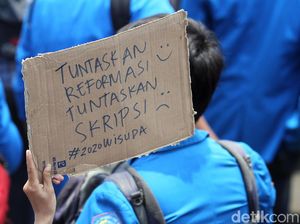 TUNTASKAN
REFORMASI :)
TUNTASKAN
SKRIPSI :(
#2020WISUDA
detikcom